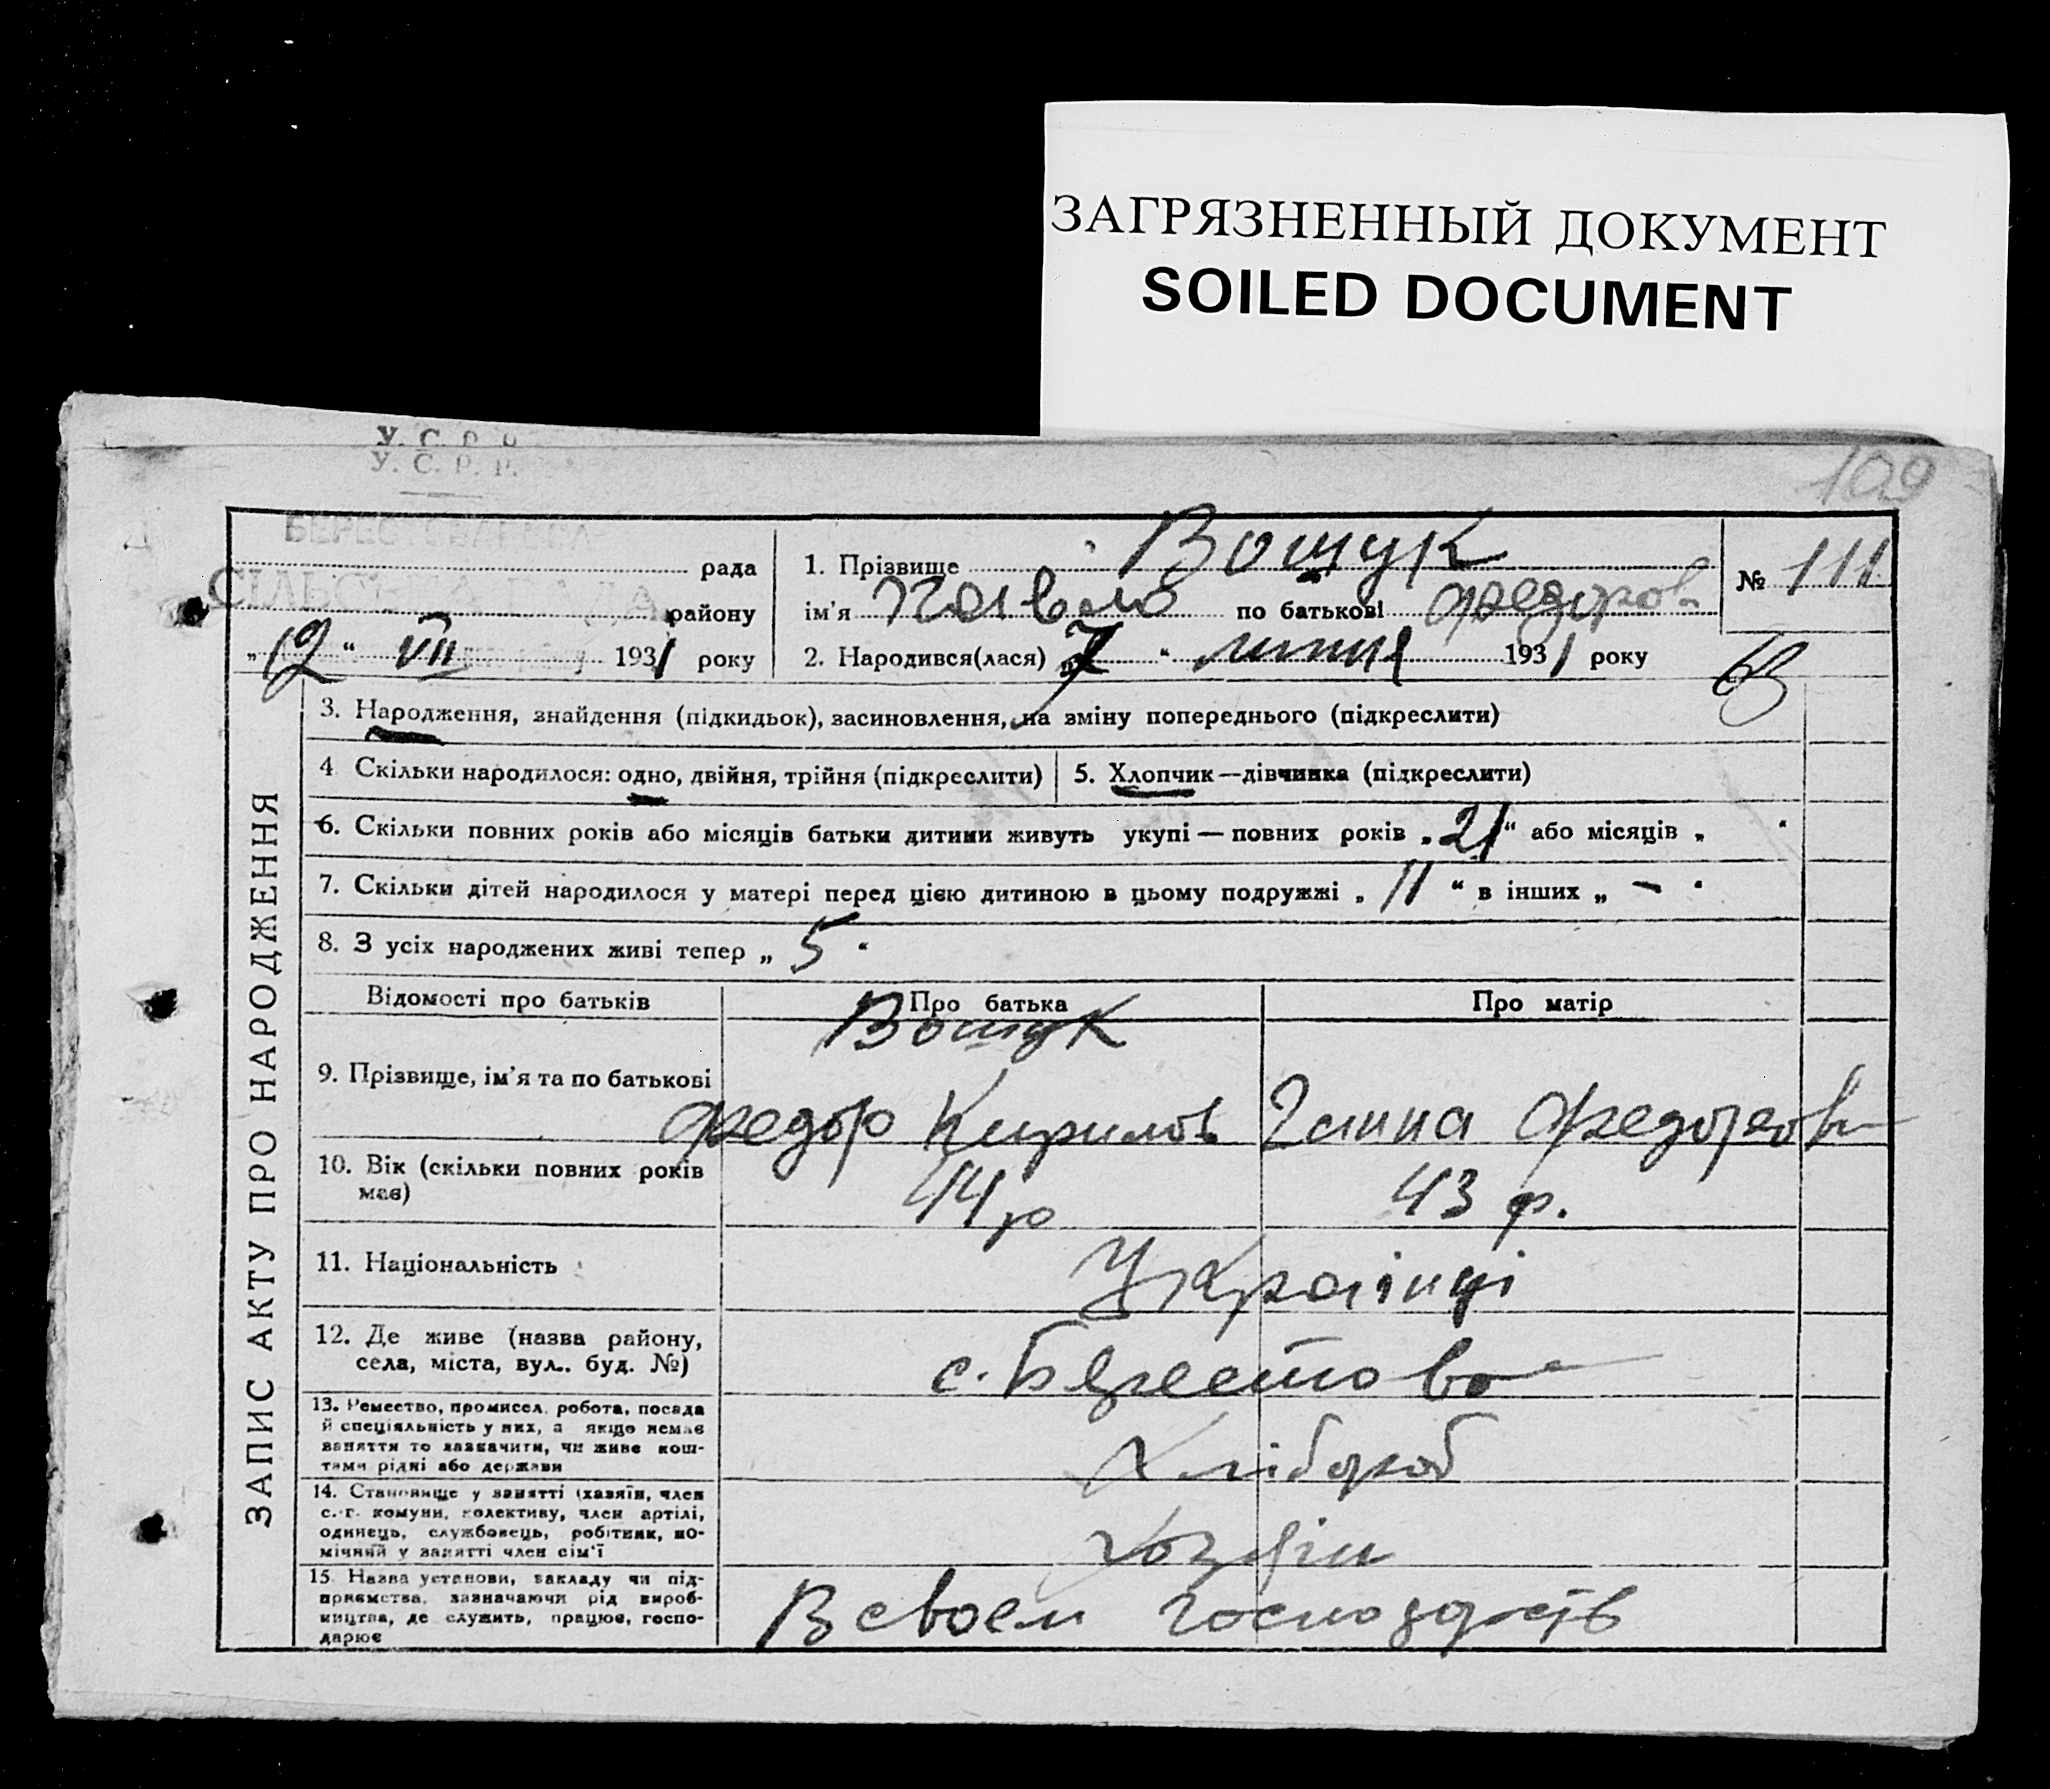 ЗАГРЯЗНЕННЫЙ ДОКУМЕНТ
SOILED DOCUMENT
109
У. С. Р. Р.
У. С. Р. Р.
СІЛЬСЬКА РАДА
рада
району
„12“ VII 1931 року
1. Прізвище Вощук
ім’я Павло по батькові Федоров
2. Народився(лася) „7“ липня 1931 року
№ 111
ЗАПИС АКТУ ПРО НАРОДЖЕННЯ
3. Народження, знайдення (підкидьок), засиновлення, на зміну попереднього (підкреслити)
4 Скільки народилося: одно, двійня, трійня (підкреслити)
5. Хлопчик—дівчинка (підкреслити)
6. Скільки повних років або місяців батьки дитини живуть укупі — повних років „21“ або місяців „ “
7. Скільки дітей народилося у матері перед цією дитиною в цьому подружжі „11“ в інших „ – “
8. З усіх народжених живі тепер „5“
Відомості про батьків Про батька Про матір
9. Прізвище, ім’я та по батькові
Вощук
Федор Кирилов Ганна Федоров
10. Вік (скільки повних років має) 44 р 43 р.
11. Національність Українці
12. Де живе (назва району, села, міста, вул.. буд. №) с. Берестова
13. Ремество, промисел, робота, посада
й спеціяльність у них, а якщо немає
заняття то зазначити, чи живе кош-
тами рідні або держави
Хлібороб
14. Становище у занятті (хазяїн, член
с.-г. комуни, колективу, член артілі,
одинець, службовець, робітник, по-
мічний у занятті член сім’ї
Хозяїн
15. Назва установи, закладу чи під-
приємства, зазначаючи рід вироб-
ництва, де служить, працює, госпо-
дарює
В своем господарств